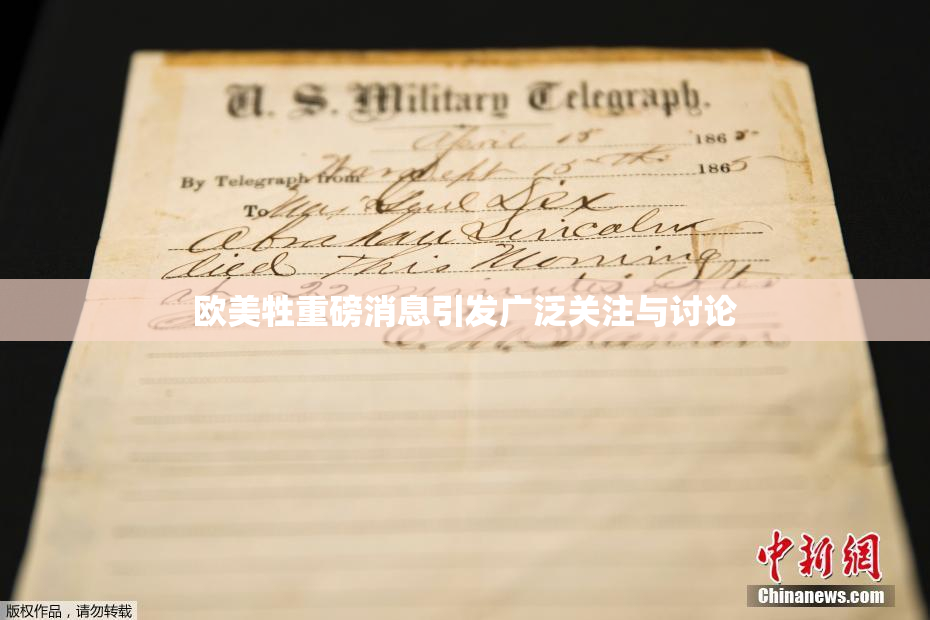 U. S. Military Telegraph.
April 15 1865
By Telegraph from War Dept 15th 1865
To Maj Genl Dix
Abraham Lincoln
died This Morning
at 22 minutes after
欧美牲重磅消息引发广泛关注与讨论
E. M. Stanton
中新网
Chinanews.com
版权作品，请勿转载